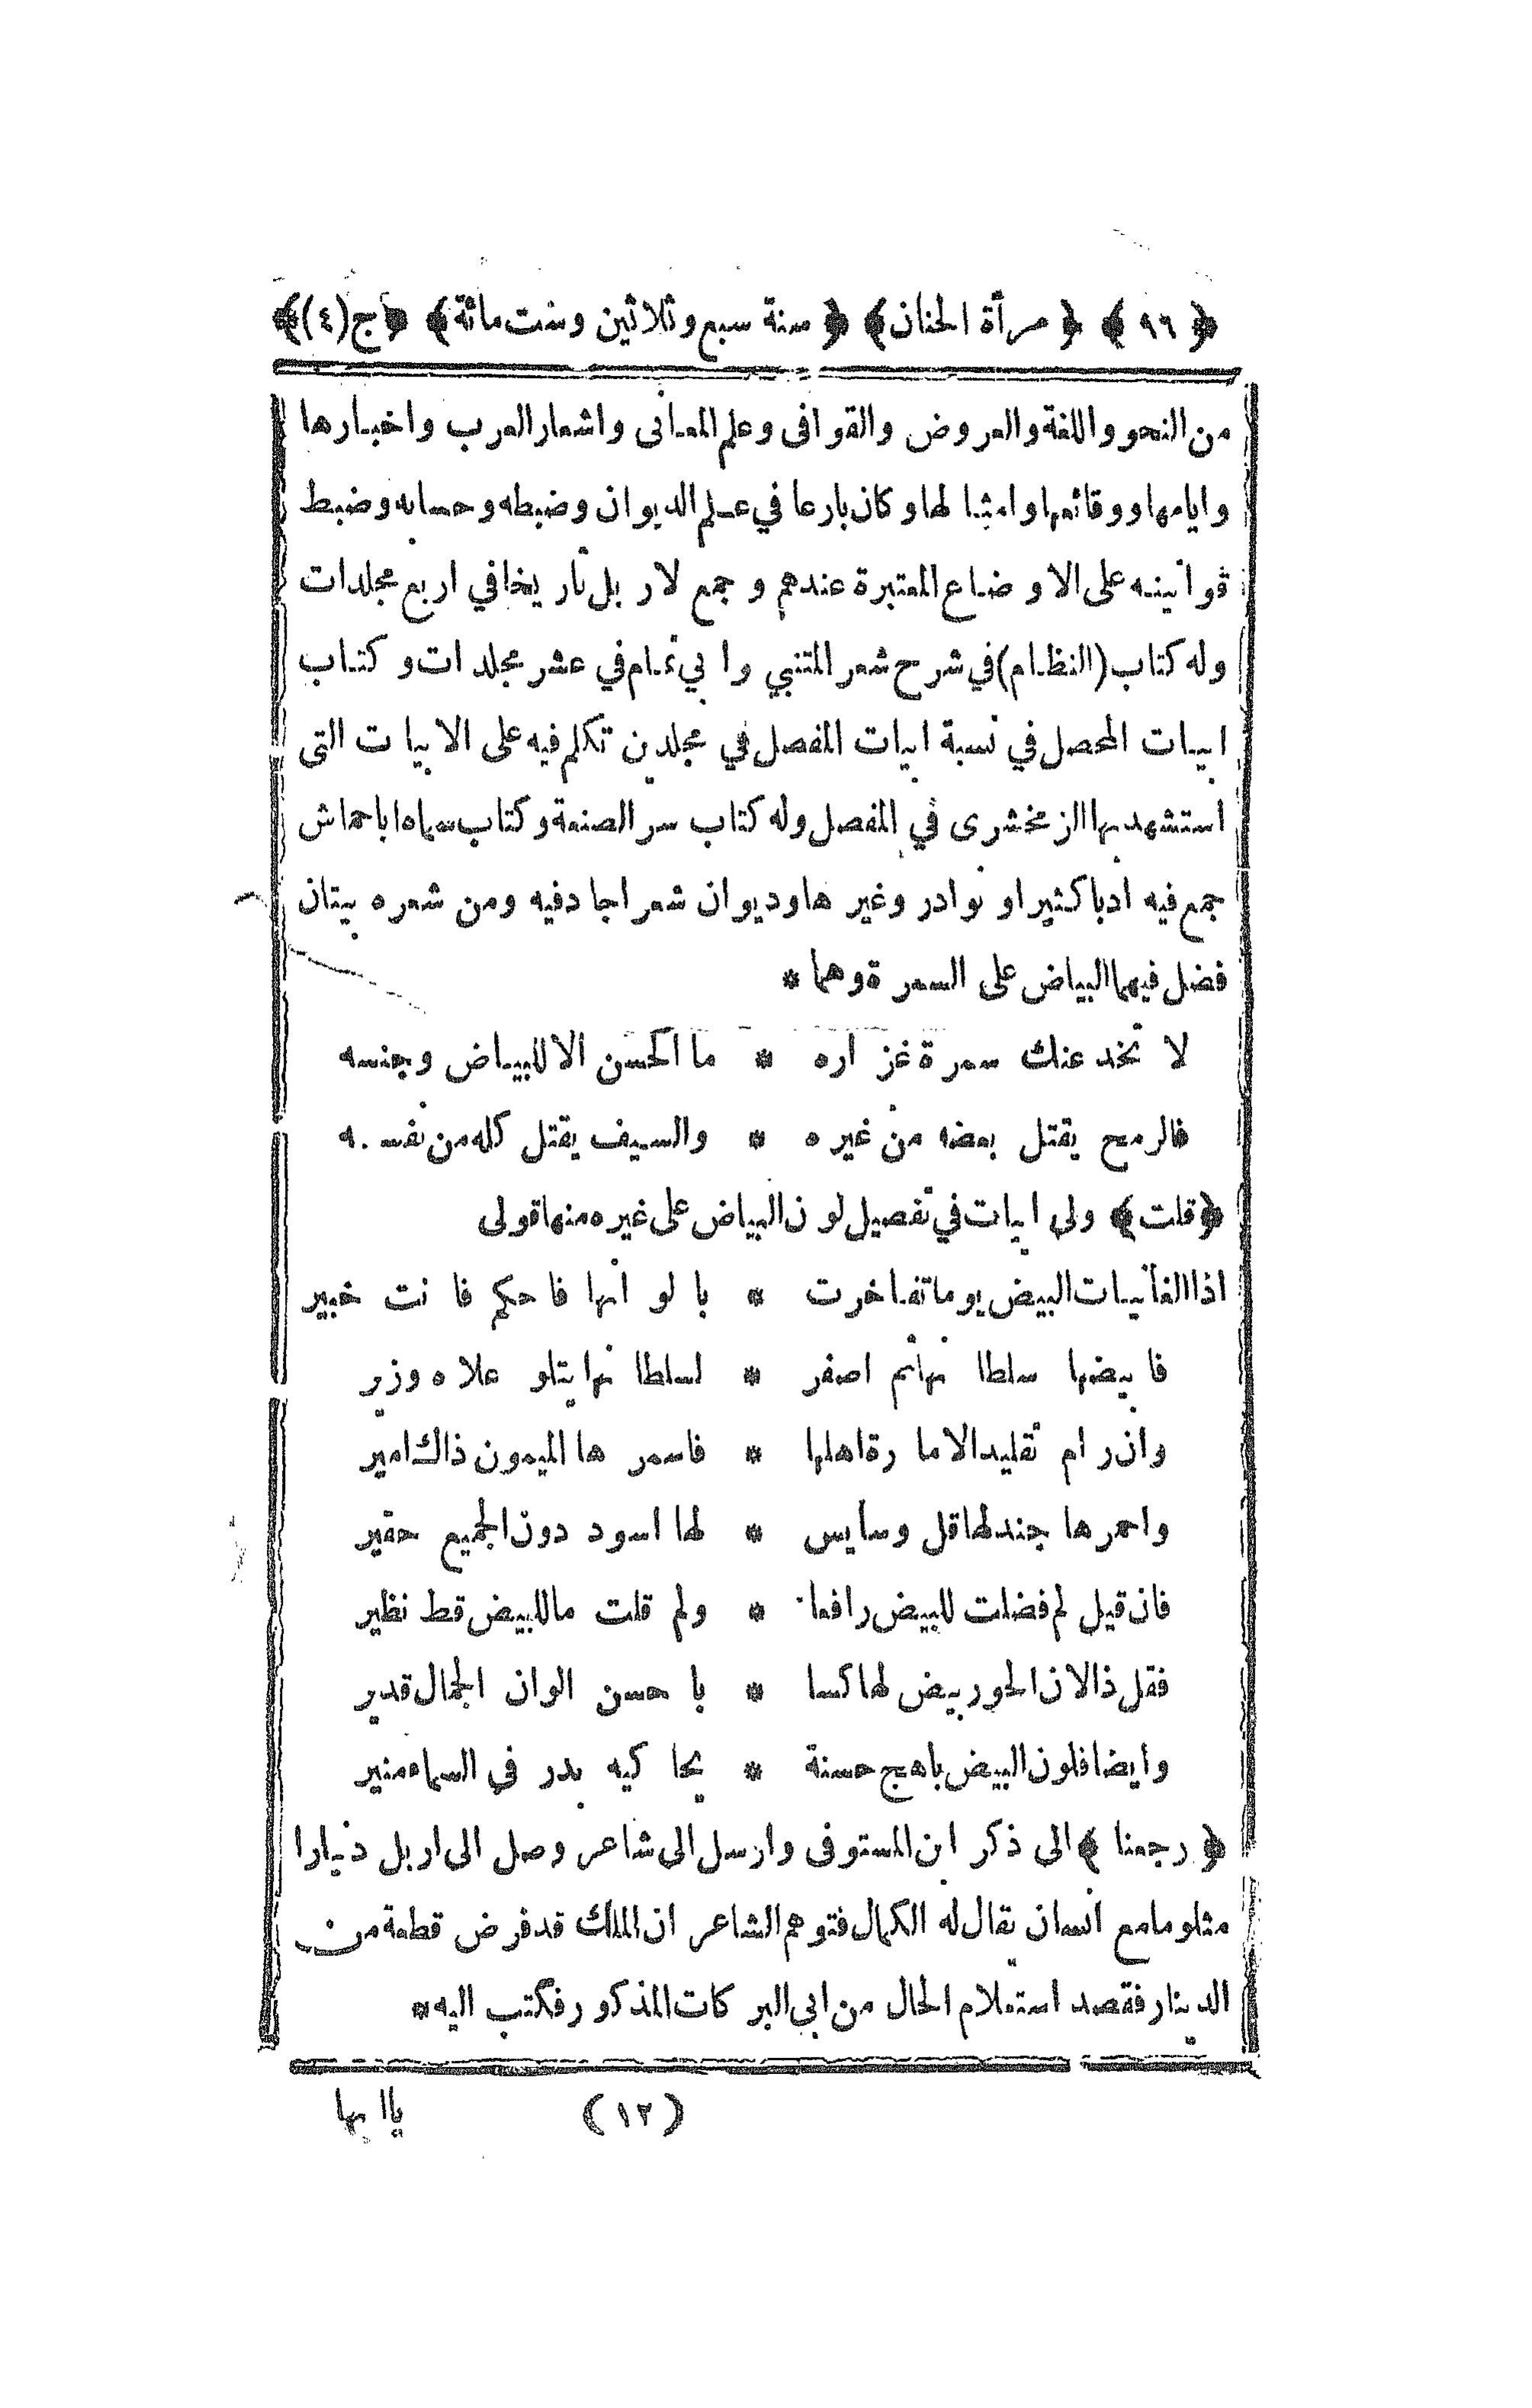 ﴿ ٩٦ ﴾ ﴿ مرأة الجنان ﴾ ﴿ سنة سبع وثلاثين وست مائة ﴾ ﴿ ج (٤) ﴾
من النحو واللغة والعروض والقوافى وعلم المعانى واشعار العرب واخبارها
وايامها ووقائعها وامثالها وكان بارعا في علم الديوان وضبطه وحسابه وضبط
قوانينه على الاوضاع المعتبرة عندهم وجمع لاربل تاريخا في اربع مجلدات
وله كتاب (النظام) في شرح شعر المتنبي وابي تمام في عشر مجلدات وكتاب
ابيات المحصل في نسبة ابيات المفصل في مجلدين تكلم فيه على الابيات التى
استشهد بها الزمخشرى في المفصل وله كتاب سر الصنعة وكتاب سماه اباحماش
جمع فيه ادبا كثيرا ونوادر وغيرها وديوان شعر اجاد فيه ومن شعره بيتان
فضل فيهما البياض على السمرة وهما *
لا تخدعنك سمرة غزاره * ما الحسن الا للبياض وجنسه
فالرمح يقتل بعضه من غيره * والسيف يقتل كله من نفسه
﴿ قلت ﴾ ولى ابيات في تفصيل لون البياض على غيره منها قولى
اذا الغانيات البيض يوما تفاخرت * بالوانها فاحكم فانت خبير
فابيضها سلطانها ثم اصفر * لسلطانها يتلو علاه وزير
وان رام تقليد الامارة اهلها * فاسمرها الميمون ذاك امير
واحمرها جند لها قل وسايس * لها اسود دون الجميع حقير
فان قيل لم فضلت للبيض رافعا * ولم قلت ما للبيض قط نظير
فقل ذا لان الحور بيض لها كسا * باحسن الوان الجمال قدير
وايضا فلون البيض باهج حسنة * يحاكيه بدر في السماء منير
﴿ رجعنا ﴾ الى ذكر ابن المستوفى وارسل الى شاعر وصل الى اربل دينارا
مثلوما مع انسان يقال له الكمال فتوهم الشاعر ان الملك قد قرض قطعة من
الدينار فقصد استعلام الحال من ابي البركات المذكور فكتب اليه *
(١٢) ياايها